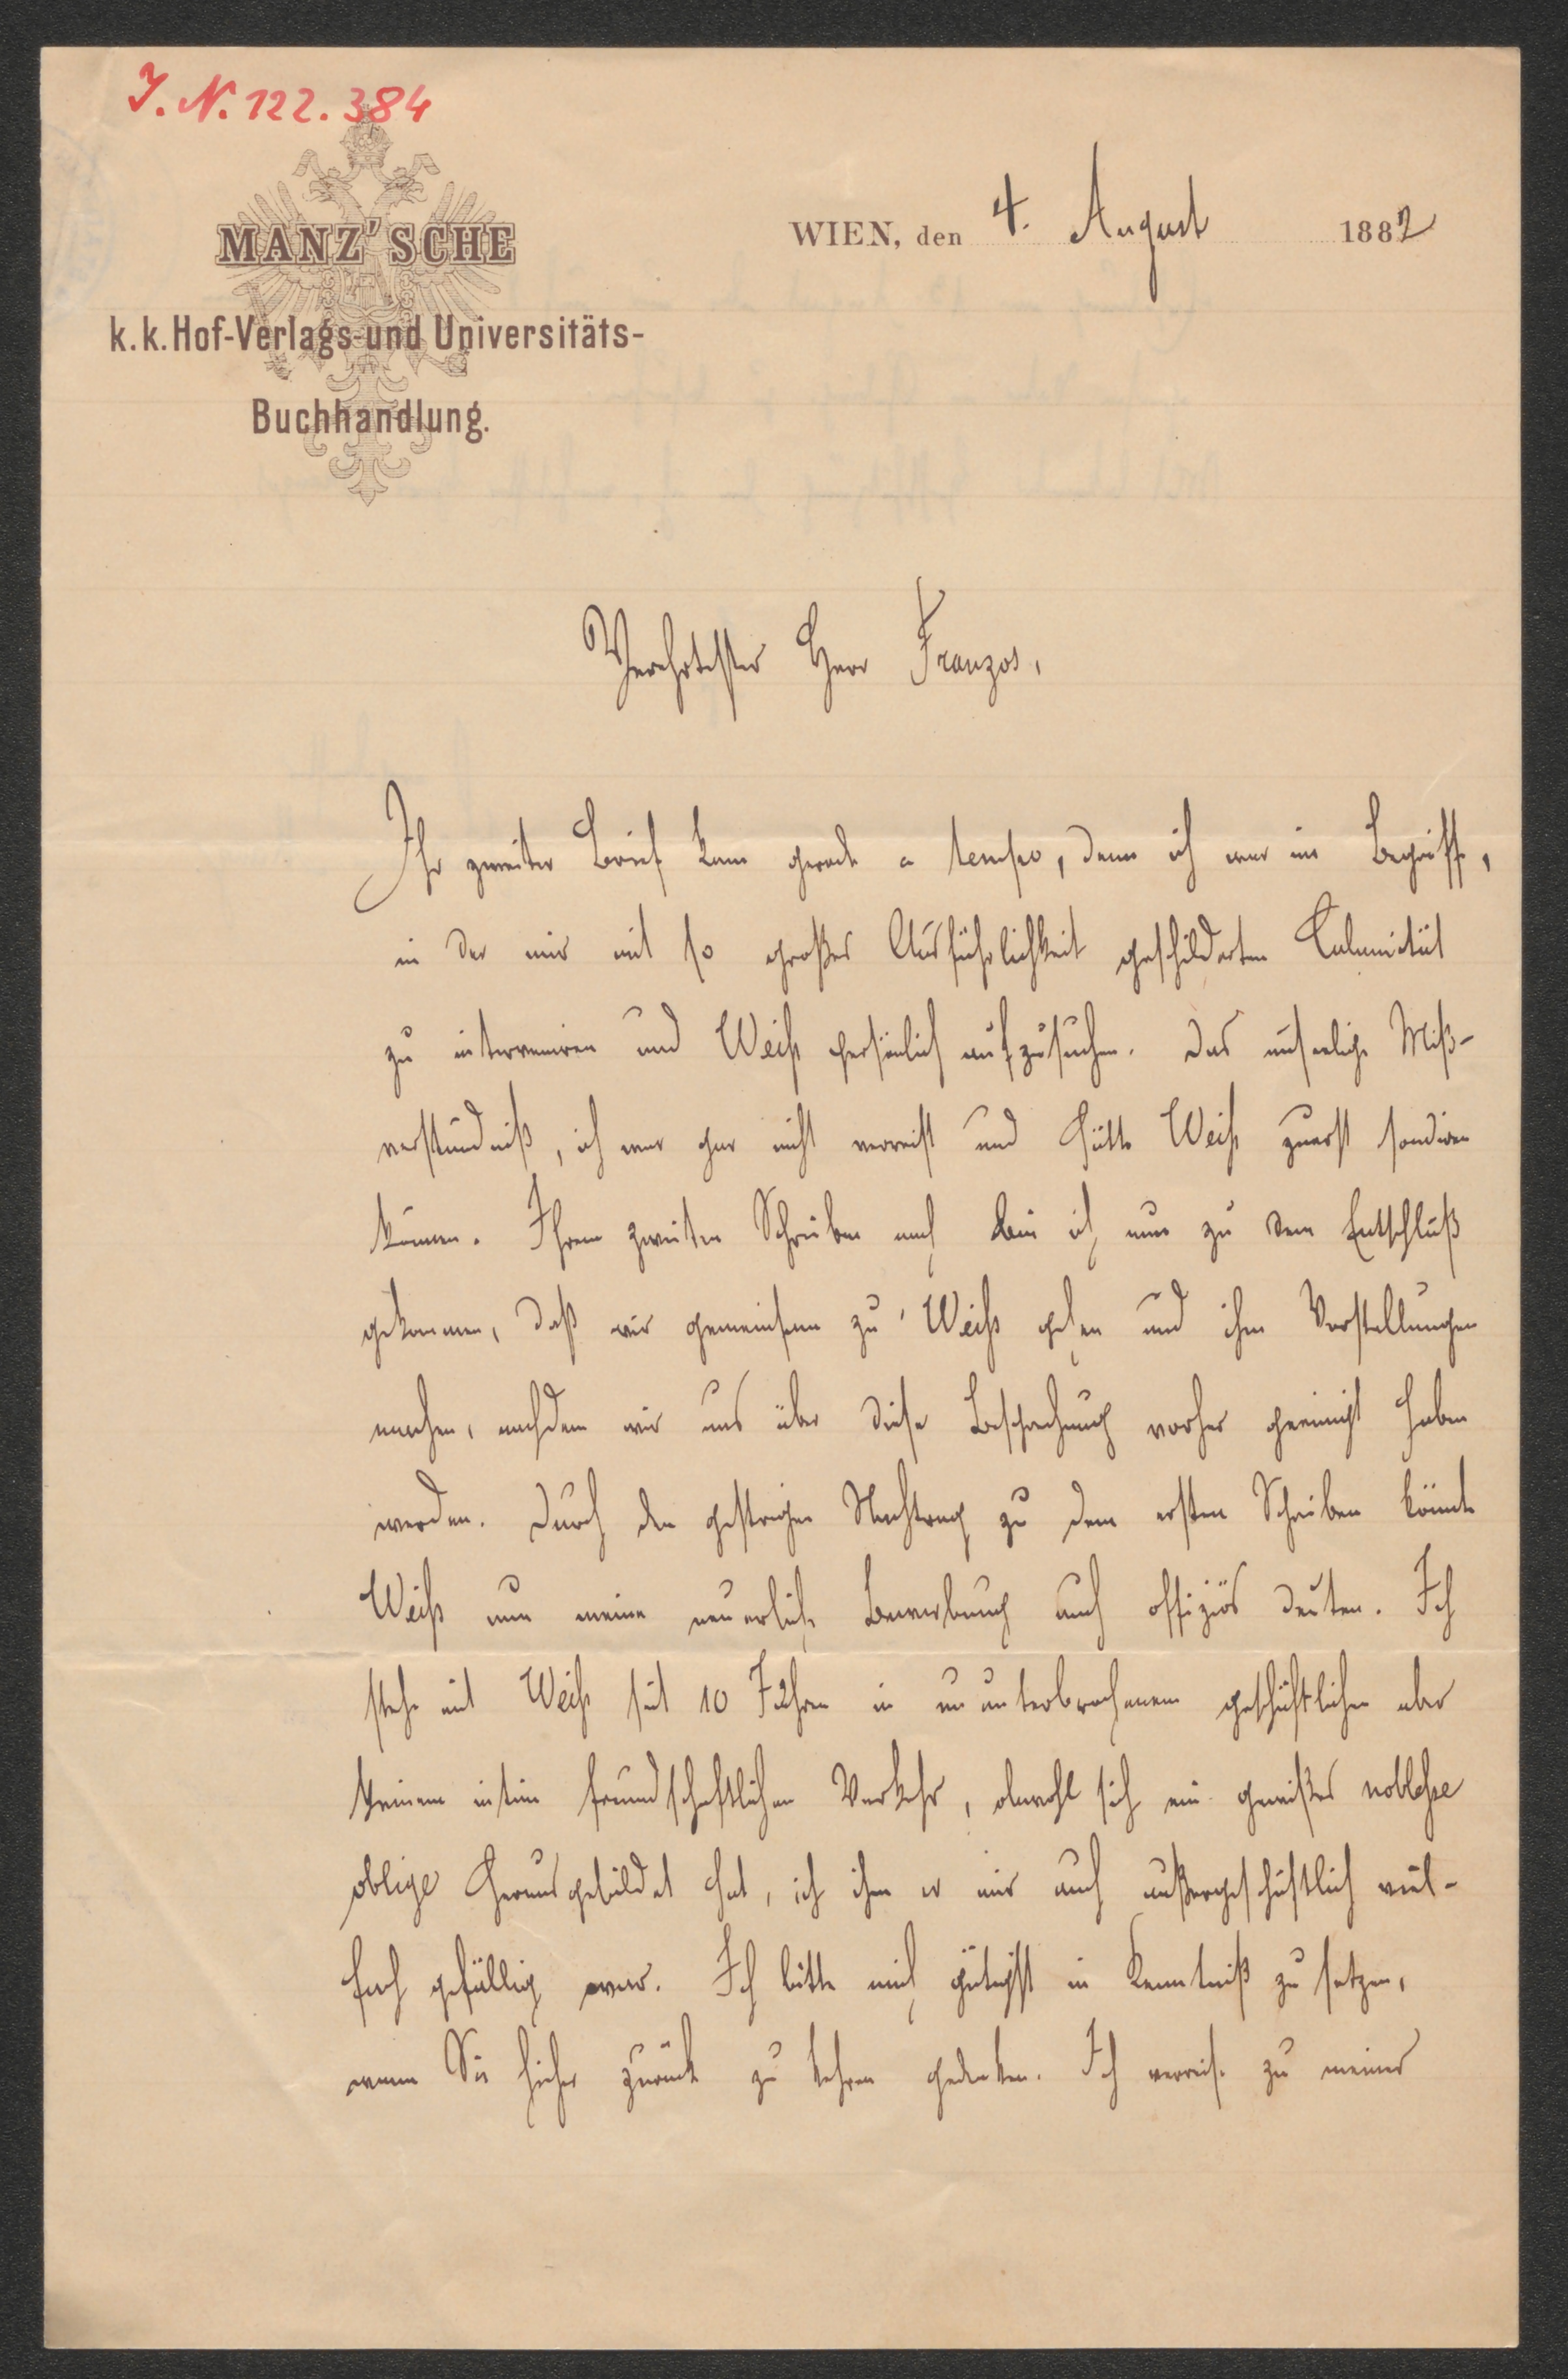 I. N. 122.384
MANZ'SCHE
k. k. Hof-Verlags- und Universitäts-
Buchhandlung.
WIEN, den 4. August 1882
Verehrtester Herr Franzos,
Ihr zweiter Brief kam gerade a tempo, denn ich war im Begriff,
in der mir mit so großer Ausführlichkeit geschilderten Calamität
zu interveniren und Weiß persönlich aufzusuchen. Das unselige Miß-
verständniß, ich war gar nicht verreist und hätte Weiß zuerst sondiren
können. Ihrem zweiten Schreiben nach bin ich nun zu dem Entschluß
gekommen, daß wir gemeinsam zu Weiß gehen und ihm Vorstellungen
machen, nachdem wir uns über diese Besprechung vorher geeinigt haben
werden. Durch den gestrigen Nachtrag zu dem ersten Schreiben könnte
Weiß nun meine neuerliche Bewerbung auch offiziös deuten. Ich
stehe mit Weiß seit 10 Jahren in ununterbrochenem geschäftlichen aber
keinem intim freundschaftlichen Verkehr, obwohl sich ein gewißes noblesse
oblige herausgebildet hat, ich ihm er mir auch außergeschäftlich viel-
fach gefällig war. Ich bitte mich gütigst in Kenntniß zu setzen,
wann Sie hieher zurück zu kehren gedenken. Ich verreise zu meiner